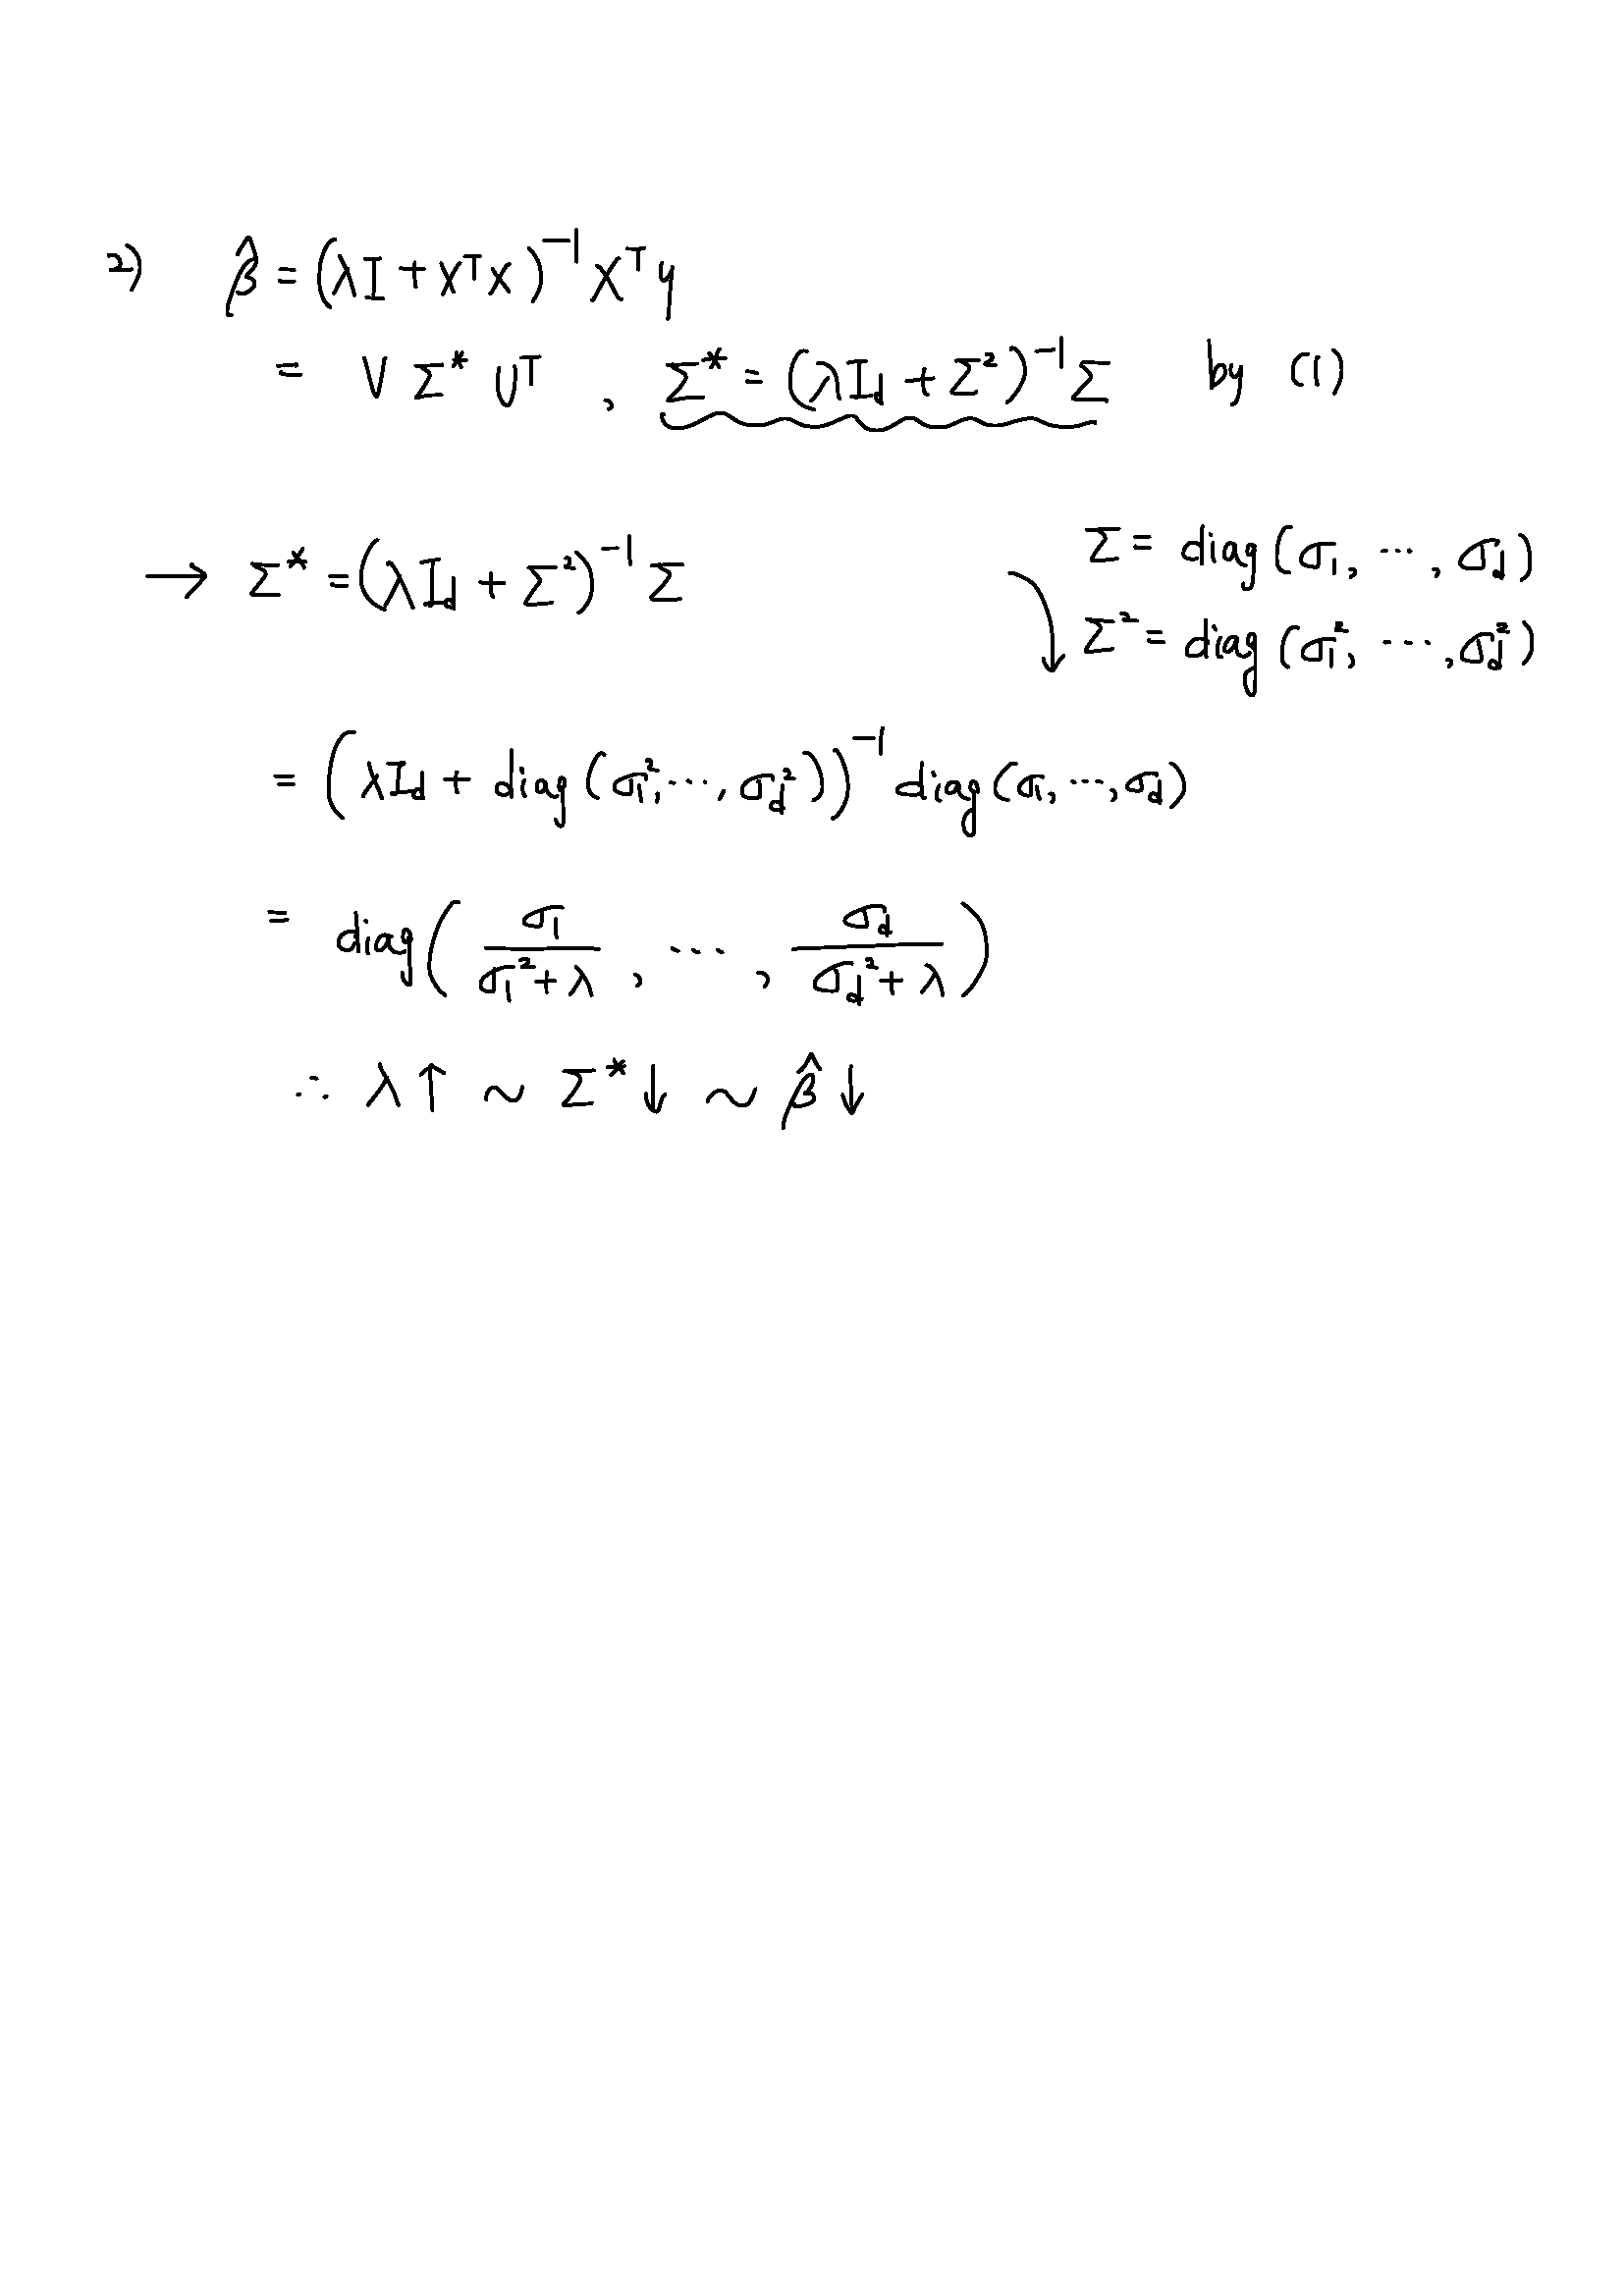 2) β̂ = (λI + XᵀX)⁻¹Xᵀy
= V Σ* Uᵀ , Σ* = (λI_d + Σ²)⁻¹Σ by (1)
→ Σ* = (λI_d + Σ²)⁻¹ Σ
Σ = diag(σ₁, ⋯, σ_d)
Σ² = diag(σ₁², ⋯, σ_d²)
= (λI_d + diag(σ₁², ⋯, σ_d²))⁻¹ diag(σ₁, ⋯, σ_d)
= diag( σ₁/(σ₁² + λ) , ⋯ , σ_d/(σ_d² + λ) )
∴ λ↑ ~ Σ*↓ ~ β̂↓